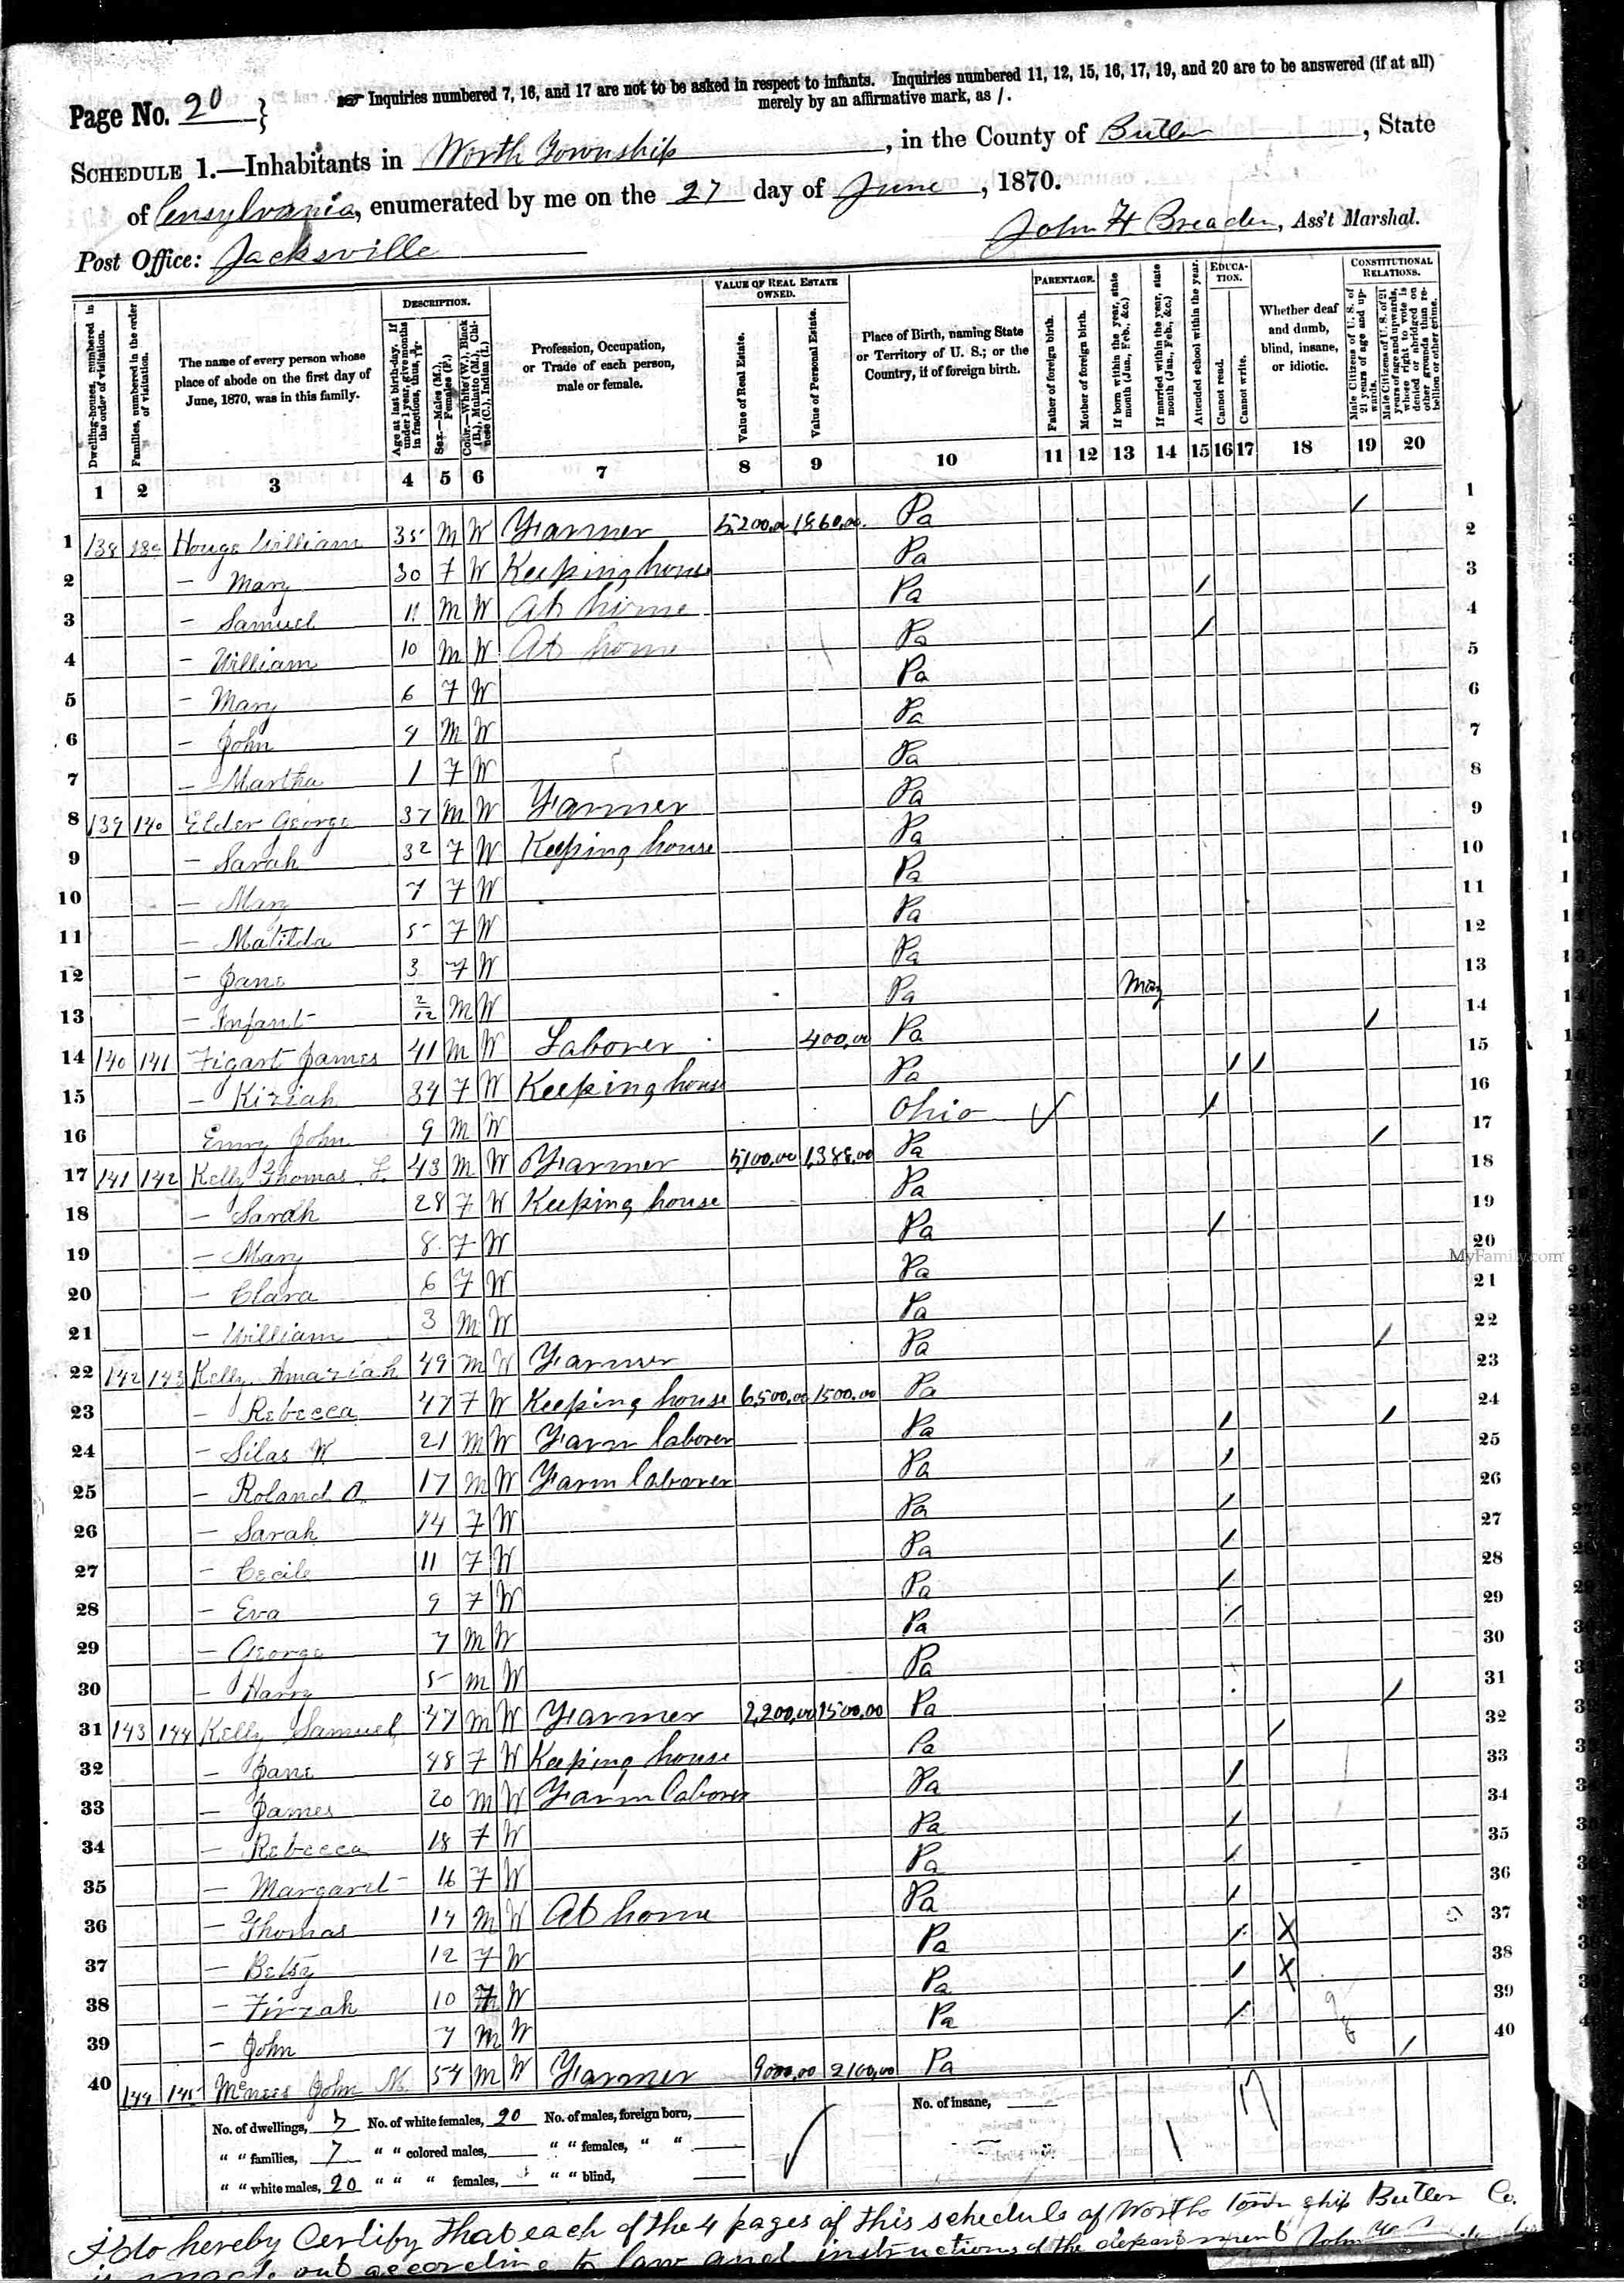 Page No. 20
Inquiries numbered 7, 16, and 17 are not to be asked in respect to infants. Inquiries numbered 11, 12, 15, 16, 17, 19, and 20 are to be answered (if at all)
merely by an affirmative mark, as /.
SCHEDULE 1.—Inhabitants in Worth Township, in the County of Butler, State
of Pensylvania, enumerated by me on the 27 day of June, 1870.
Post Office: Jacksville
John H Breaden, Ass't Marshal.
Dwelling-houses, numbered in the order of visitation.
Families, numbered in the order of visitation.
The name of every person whose place of abode on the first day of June, 1870, was in this family.
DESCRIPTION.
Age at last birth-day. If under 1 year, give months in fractions, thus, 3/12
Sex.—Males (M.), Females (F.)
Color.—White (W.), Black (B.), Mulatto (M.), Chinese (C.), Indian (I.)
Profession, Occupation, or Trade of each person, male or female.
VALUE OF REAL ESTATE OWNED.
Value of Real Estate.
Value of Personal Estate.
Place of Birth, naming State or Territory of U. S.; or the Country, if of foreign birth.
PARENTAGE.
Father of foreign birth.
Mother of foreign birth.
If born within the year, state month (Jan., Feb., &c.)
If married within the year, state month (Jan., Feb., &c.)
Attended school within the year.
EDUCATION.
Cannot read.
Cannot write.
Whether deaf and dumb, blind, insane, or idiotic.
CONSTITUTIONAL RELATIONS.
Male Citizens of U. S. of 21 years of age and upwards.
Male Citizens of U. S. of 21 years of age and upwards, whose right to vote is denied or abridged on other grounds than rebellion or other crime.
1 2 3 4 5 6 7 8 9 10 11 12 13 14 15 16 17 18 19 20
1 138 139 Houge William 35 M W Farmer 5,200,00 1,860,00 Pa / 1
2 — Mary 30 F W Keeping house Pa 2
3 — Samuel 11 M W At home Pa / 3
4 — William 10 M W At home Pa / 4
5 — Mary 6 F W Pa 5
6 — John 4 M W Pa 6
7 — Martha 1 F W Pa 7
8 139 140 Elder George 37 M W Farmer Pa 8
9 — Sarah 32 F W Keeping house Pa 9
10 — Mary 7 F W Pa 10
11 — Matilda 5 F W Pa 11
12 — Jane 3 F W Pa 12
13 — Infant 2/12 M W Pa May 13
14 140 141 Figart James 41 M W Laborer 400,00 Pa / 14
15 — Kiziah 34 F W Keeping house Pa / / 15
16 Emry John 9 M W Ohio / 16
17 141 142 Kelly Thomas L. 43 M W Farmer 5,100,00 1,388,00 Pa / 17
18 — Sarah 28 F W Keeping house Pa 18
19 — Mary 8 F W Pa / 19
20 — Clara 6 F W Pa 20
21 — William 3 M W Pa 21
22 142 143 Kelly Amaziah 49 M W Farmer Pa / 22
23 — Rebecca 47 F W Keeping house 6,500,00 1500,00 Pa 23
24 — Silas W 21 M W Farm laborer Pa / / 24
25 — Roland A. 17 M W Farm laborer Pa / 25
26 — Sarah 14 F W Pa / 26
27 — Cecile 11 F W Pa / 27
28 — Eva 9 F W Pa / 28
29 — George 7 M W Pa / 29
30 — Harry 5 M W Pa 30
31 143 144 Kelly Samuel 47 M W Farmer 2,200,00 1500,00 Pa / 31
32 — Jane 48 F W Keeping house Pa / 32
33 — James 20 M W Farm laborer Pa / 33
34 — Rebecca 18 F W Pa / 34
35 — Margaret 16 F W Pa / 35
36 — Thomas 14 M W At home Pa / 36
37 — Betsy 12 F W Pa / X 37
38 — Tirzah 10 F W Pa / X 38
39 — John 7 M W Pa / 39
40 144 145 McNees John N. 54 M W Farmer 9000,00 2100,00 Pa / 40
No. of dwellings, 7 No. of white females, 20 No. of males, foreign born, No. of insane,
" " families, 7 " " colored males, " " females, " "
" " white males, 20 " " " females, " " blind,
I do hereby Certify that each of the 4 pages of this schedule of Worth township Butler Co.
is made out according to law and instructions of the department John
MyFamily.com